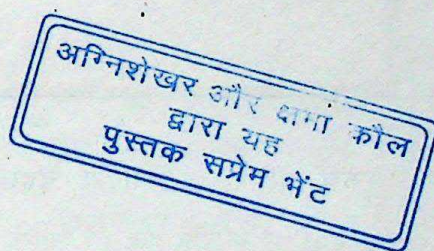 अग्निशेखर और क्षमा कौल
द्वारा यह
पुस्तक सप्रेम भेंट